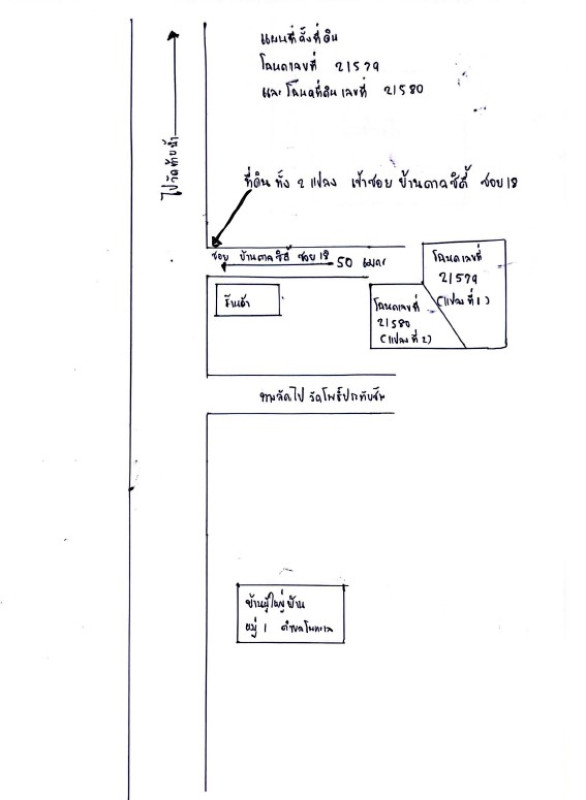 แผนที่ตั้งที่ดิน
โฉนดเลขที่ 21579
และโฉนดที่ดินเลขที่ 21580
ไปวัดท้ายน้ำ
ที่ดิน ทั้ง 2 แปลง เข้าซอย บ้านตาลซิตี้ ซอย 18
ซอย บ้านตาลซิตี้ ซอย 18
50 เมตร
โฉนดเลขที่
21579
(แปลงที่ 1)
ร้านค้า
โฉนดเลขที่
21580
(แปลงที่ 2)
ทางลัดไป วัดโพธิ์ประทับช้าง
บ้านผู้ใหญ่บ้าน
หมู่ 1 ตำบล